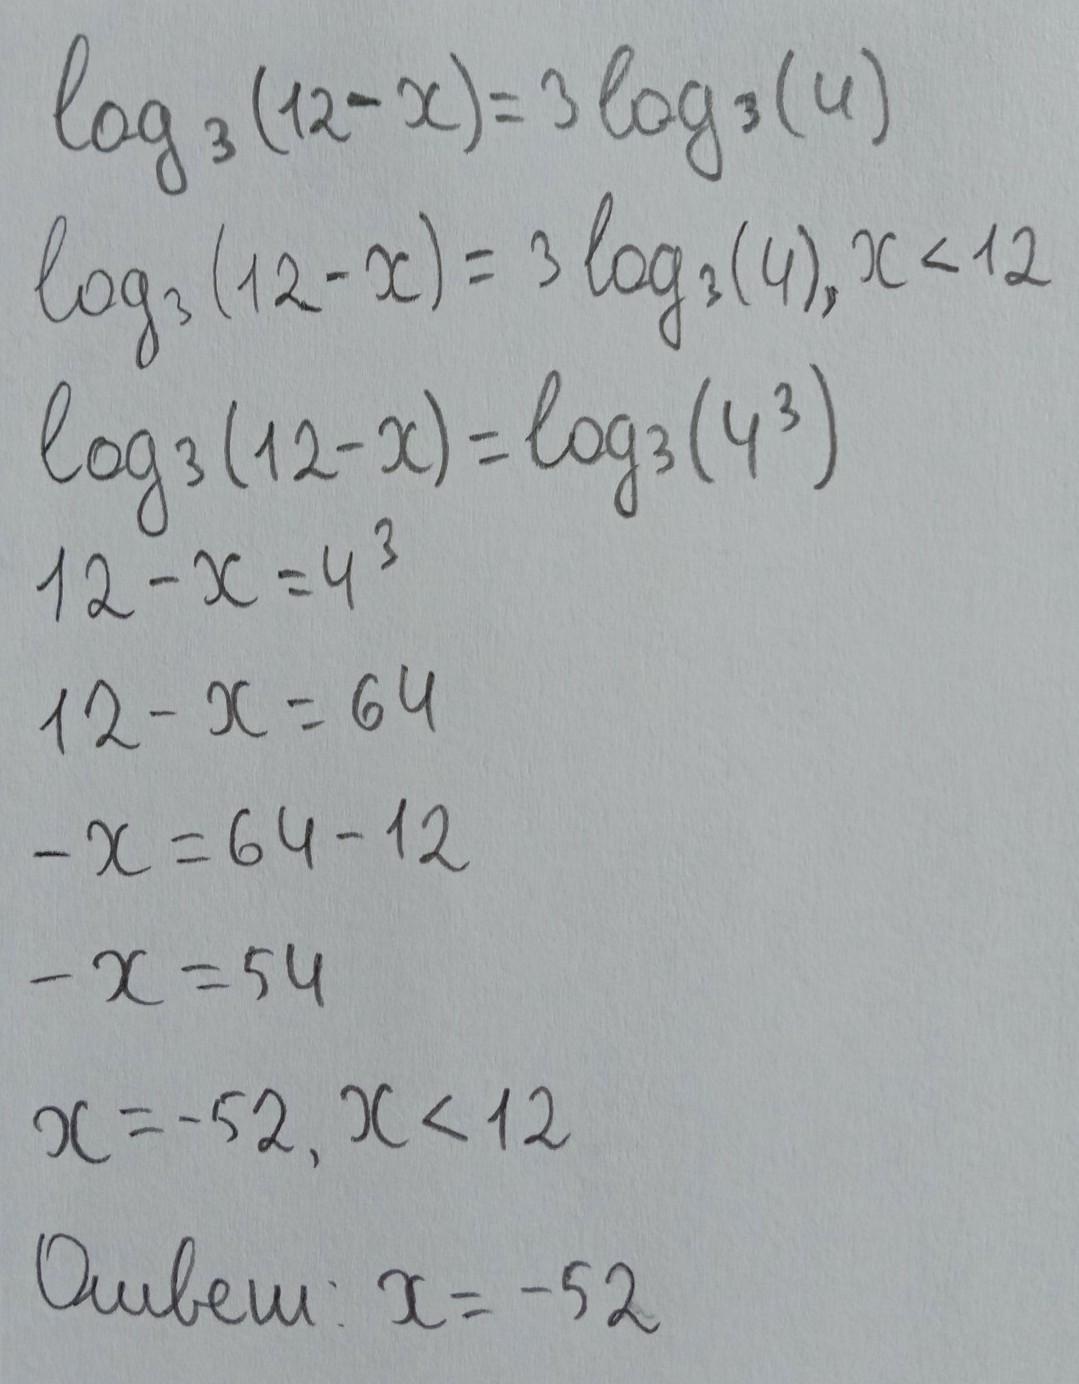 log₃(12-x)=3log₃(4)
log₃(12-x)=3log₃(4), x<12
log₃(12-x)=log₃(4³)
12-x=4³
12-x=64
-x=64-12
-x=54
x=-52, x<12
Ответ: x=-52